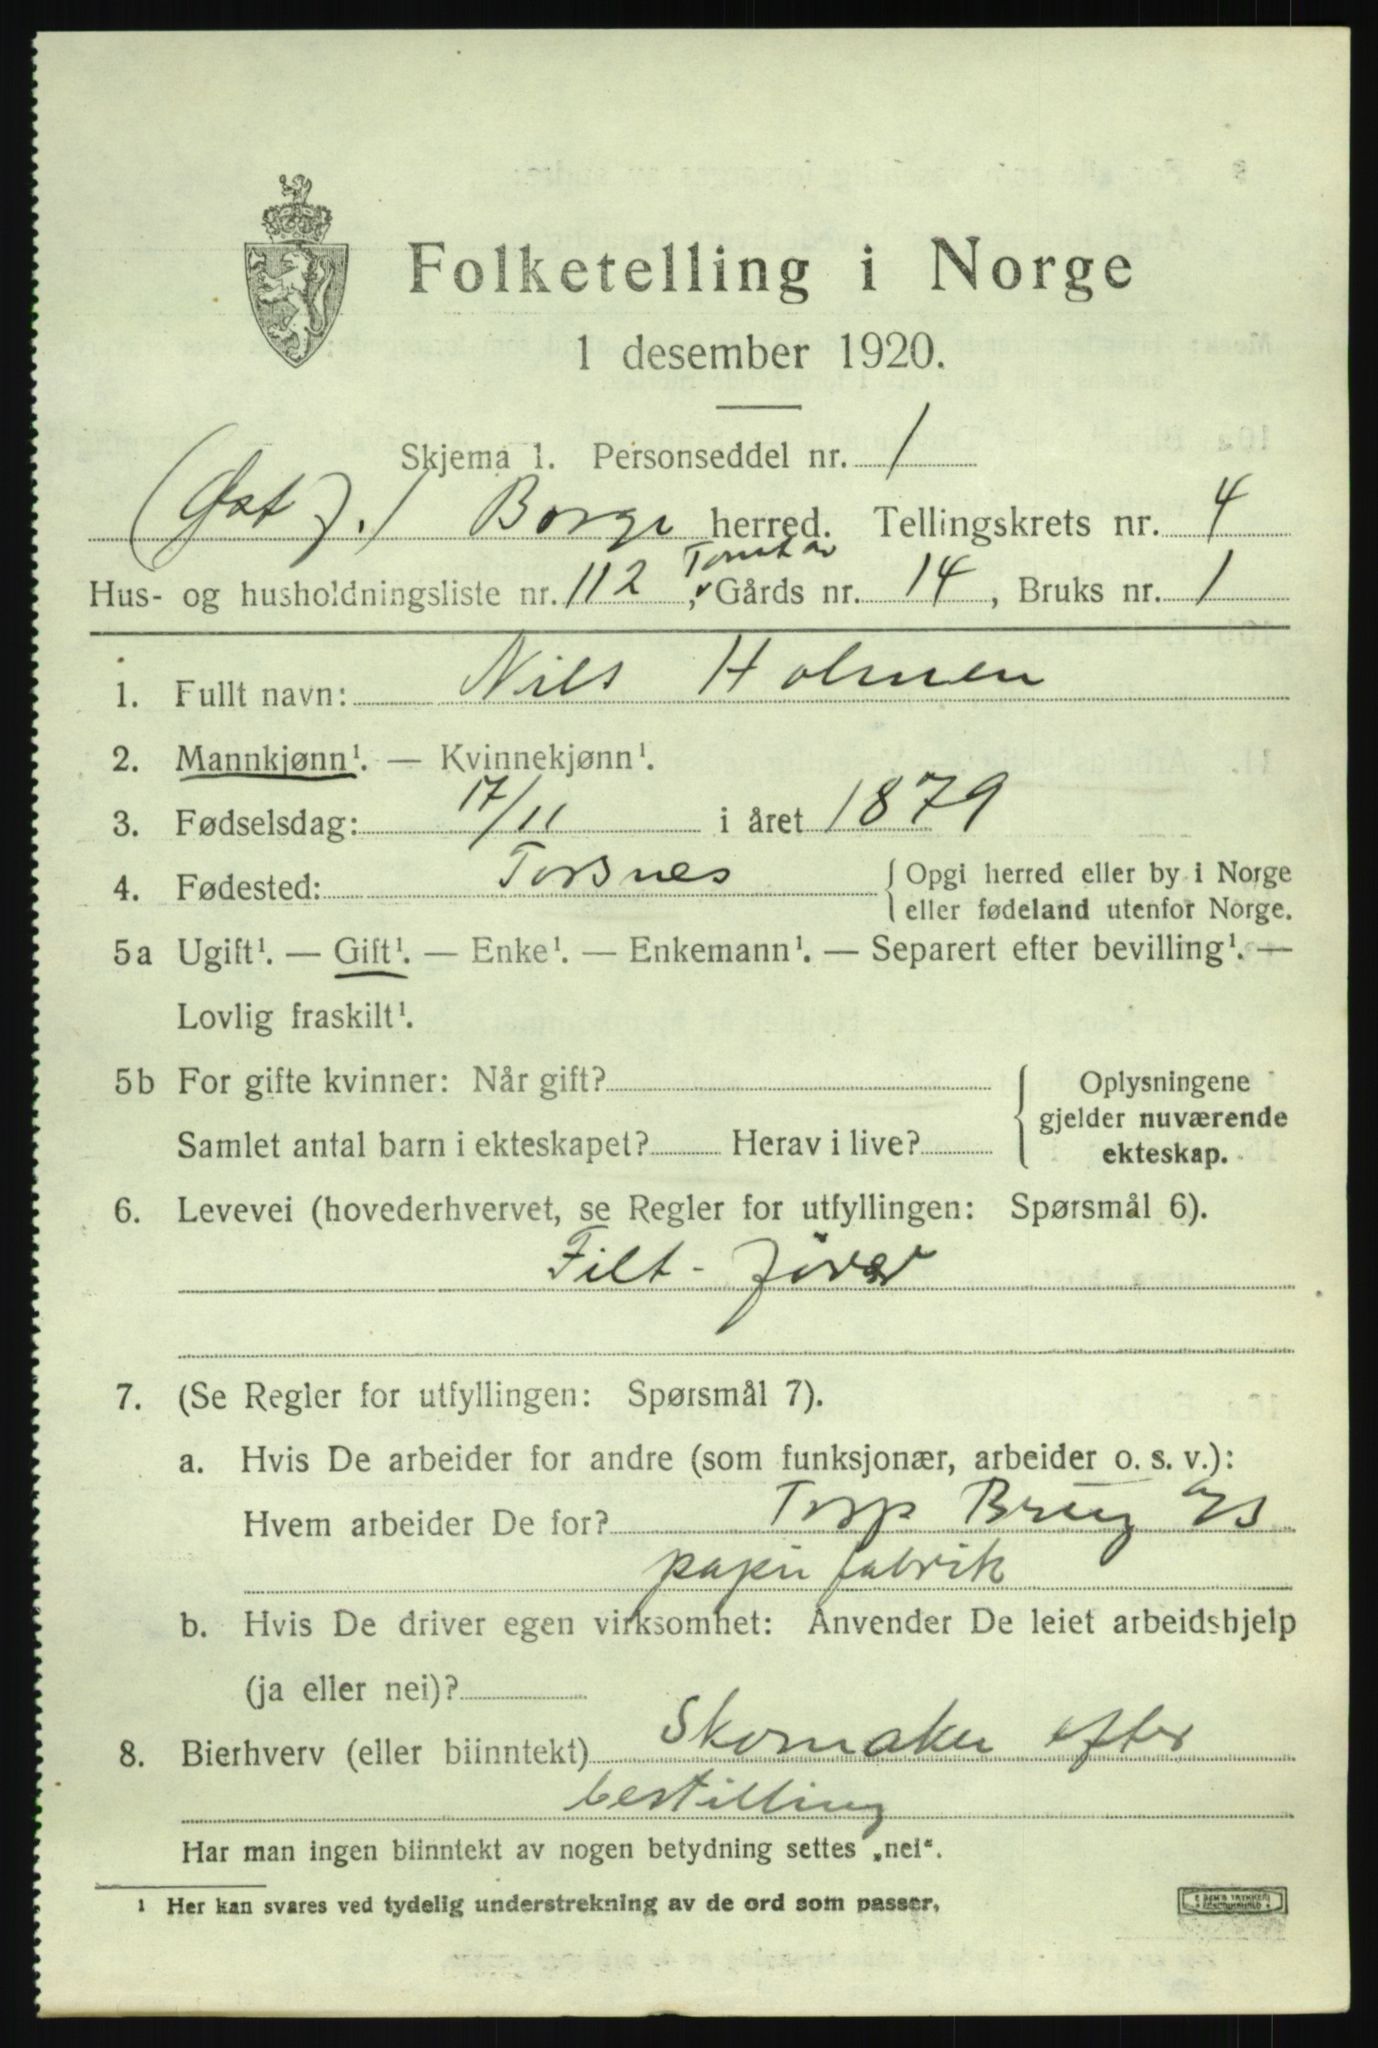 Folketelling i Norge
1 desember 1920.
Skjema 1. Personseddel nr. 1
(Østf.) Borge herred. Tellingskrets nr. 4
Tomt av
Hus- og husholdningsliste nr. 112, Gårds nr. 14, Bruks nr. 1
1. Fullt navn: Nils Holmen
2. Mannkjønn¹. — Kvinnekjønn¹.
3. Fødselsdag: 17/11 i året 1879
4. Fødested: Torsnes { Opgi herred eller by i Norge
eller fødeland utenfor Norge.
5a Ugift¹. — Gift¹. — Enke¹. — Enkemann¹. — Separert efter bevilling¹. —
Lovlig fraskilt¹.
5b For gifte kvinner: Når gift? { Oplysningene
gjelder nuværende
Samlet antal barn i ekteskapet? Herav i live?
ekteskap.
6. Levevei (hovederhvervet, se Regler for utfyllingen: Spørsmål 6).
Filt-
7. (Se Regler for utfyllingen: Spørsmål 7).
a. Hvis De arbeider for andre (som funksjonær, arbeider o. s. v.):
Hvem arbeider De for? Torp Brug
papir fabrik
b. Hvis De driver egen virksomhet: Anvender De leiet arbeidshjelp
(ja eller nei)?
8. Bierhverv (eller biinntekt) Skomaker efter
bestilling
Har man ingen biinntekt av nogen betydning settes „nei“.
¹ Her kan svares ved tydelig understrekning av de ord som passer.